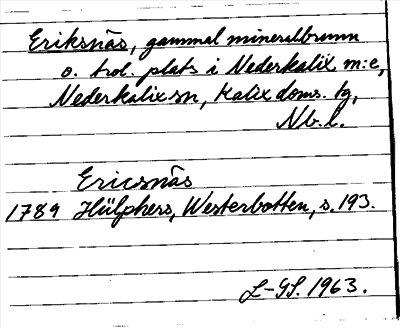 Eriksnäs, gammal mineralbrunn
o. trol. plats i Nederkalix m:e,
Nederkalix sn, Kalix doms. tg,
Nb. l.
Ericsnäs
1789 Hülphers, Westerbotten, s. 193.
L-GS. 1963.